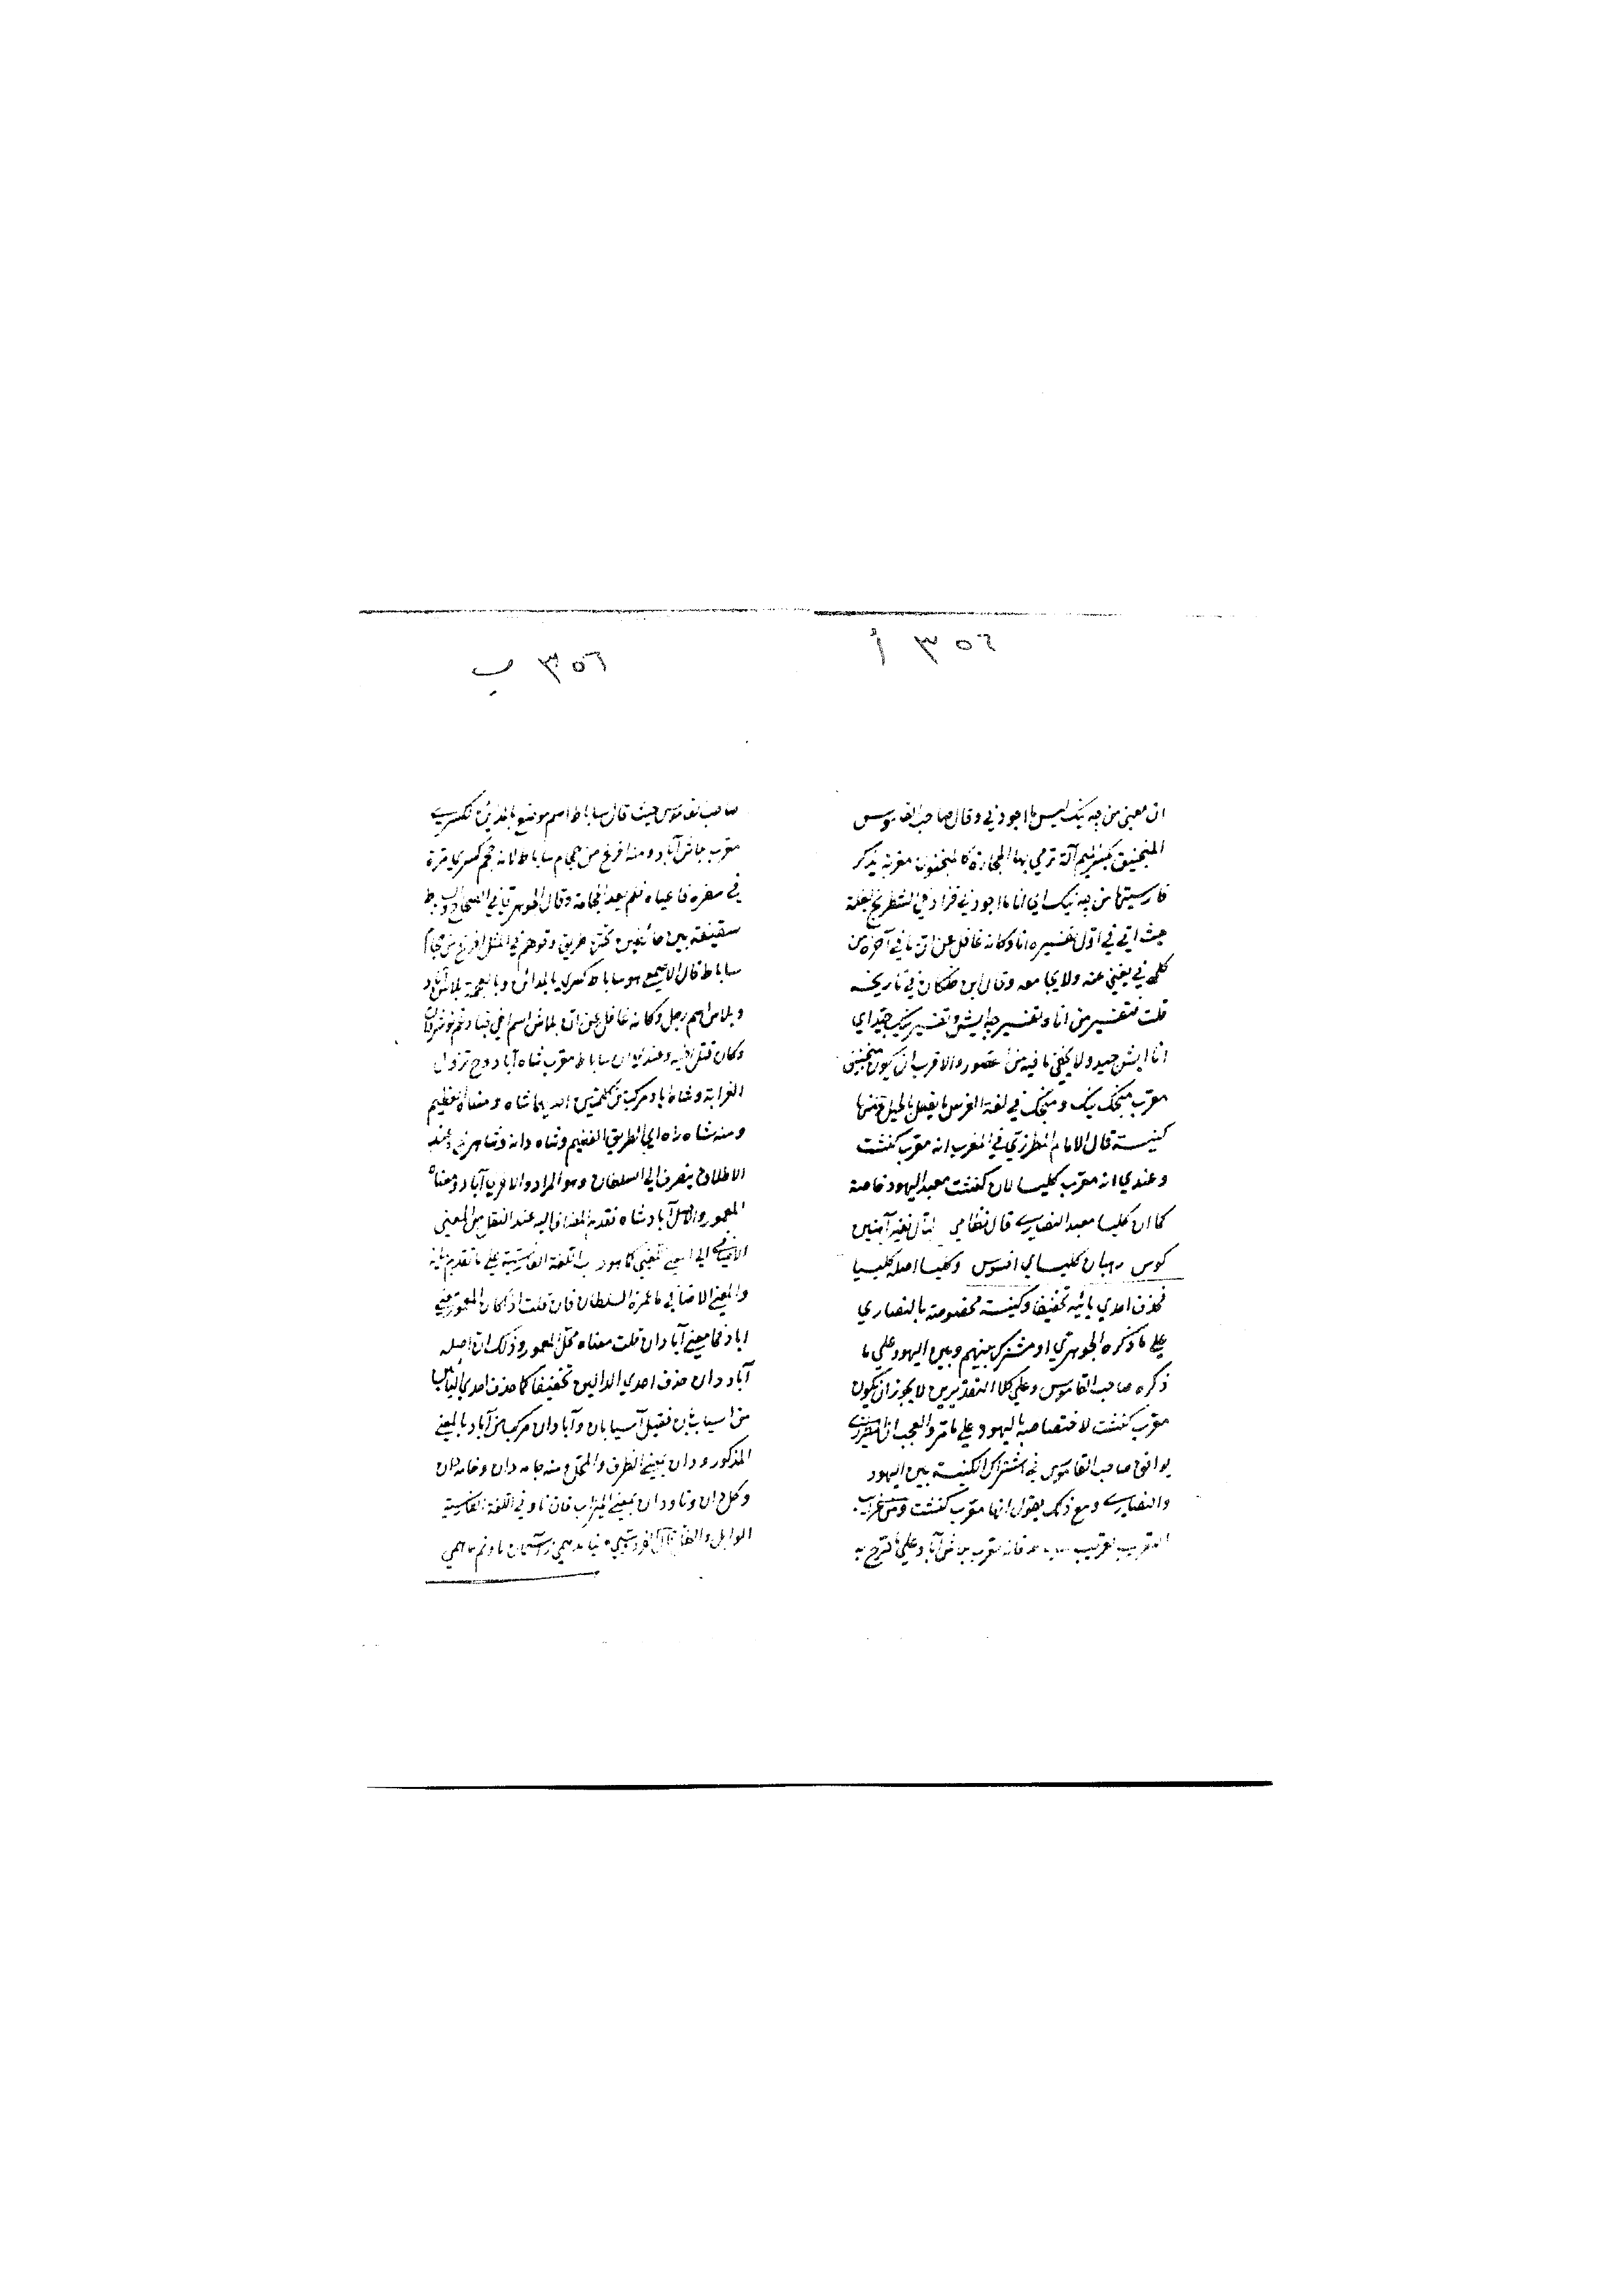 ٣٥٦ أ
ان معنى من چه نيك ليس ما اجودني وقال صاحب القاموس
المنجنيق بكسر الميم آلة ترمي بها الحجارة كالمنجنوق معربة يذكر
فارسيتها من چه نيك اي انا ما اجودني
حيث اتي في اول تفسيره انا وكانه غافل عن ان ما في آخره من
كلمة ني يغني عنه ولا يجامعه وقال ابن خلكان في تاريخه
قلت فتفسير من انا وتفسير چه ايش وتفسير نيك جيد اي
انا ايش جيد ولا يخفى ما فيه من والاقرب ان يكون منجنيق
معرب منجك نيك ومنجك في لغة الفرس ما يفعل بالحيل ومنها
كنيسة قال الامام المطرزي في المغرب انه معرب كنشت
وعندي انه معرب كليسا لان كنشت معبد اليهود خاصة
كما ان كليسا معبد النصارى قال نظامي
كوس رهبان كليساي افسوس وكليسا اصله كليسيا
فحذف احدي يائيه تخفيفا وكنيسة مخصوصة بالنصاري
علي ما ذكره الجوهري او مشترك بينهم وبين اليهود علي ما
ذكره صاحب القاموس وعلي كلا التقديرين لا يجوز ان يكون
معرب كنشت لاختصاصه باليهود علي ما مر والعجب ان المطرزي
يوافق صاحب القاموس في اشتراك الكنيسة بين اليهود
والنصارى ومع ذلك يقول انها معرب كنشت ومن غرايب
التعريب تعريب فانه معرب بلاش آباد علي ما صرح به
٣٥٦ ب
صاحب القاموس حيث قال ساباط اسم موضع بالمدائن لكسرى
معرب بلاش آباد ومنه افرغ من حجام ساباط لانه حجم كسري مرة
في سفره فاغناه فلم يعد للحجامة وقال الجوهري في الصحاح
سقيفة بين حائطين تحتها طريق وقولهم في المثل افرغ من حجام
ساباط قال الاصمعي هو ساباط كسري بالمدائن وبالعجمية بلاش آباد
وبلاش اسم رجل وكانه غافل عن ان بلاش اسم اخي قباد
وعندي ان ساباط معرب شاه آباد وح تزول
الغرابة وشاه آباد مركب من كلمتين احديهما شاه ومعناه العظيم
ومنه شاه راه اي الطريق العظيم وشاه دانه وعند
الاطلاق ينصرف الي السلطان وهو المراد والاخري آباد ومعناه
المعمور والاصل آباد شاه تقدم المضاف اليه عند النقل من المعنى
الاضافي الي المعنى اللقبي كما هو في اللغة الفارسية علي ما تقدم بيانه
والمعنى الاضافي ما عمره السلطان فان قلت اذا كان المعمور معنى
اباد فما معنى آبادان قلت معناه محل المعمور وذلك ان اصله
آباد دان حذف احدي الدالين تخفيفا كما حذف احدي البائين
من اسياب بان فقيل آسيابان وآبادان مركب من آباد بالمعنى
المذكور ودان بمعنى الظرف والمحل ومنه جامه دان وخامه دان
وناودان بمعنى الميزاب فان ناو في اللغة الفارسية